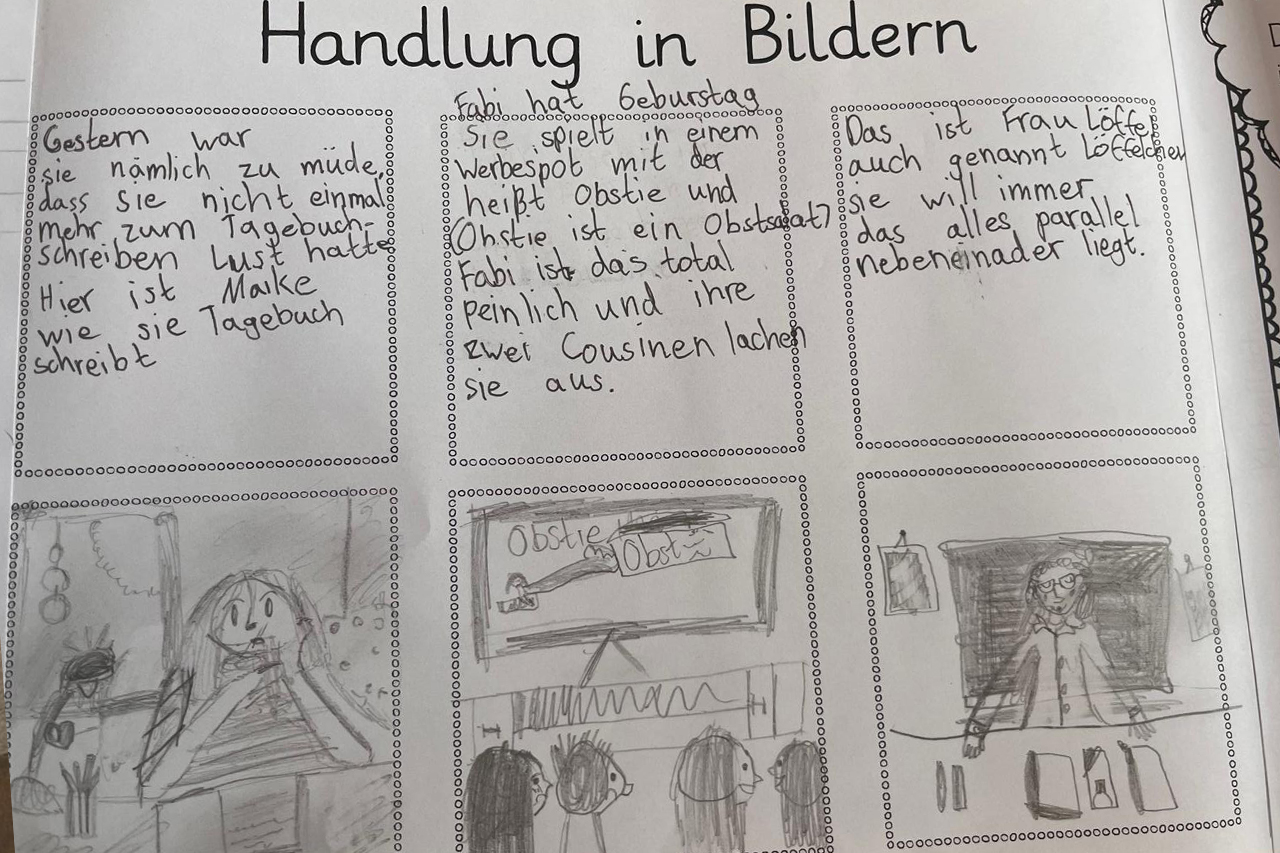 Handlung in Bildern
Gestern war
sie nämlich zu müde,
dass sie nicht einmal
mehr zum Tagebuch-
schreiben Lust hatte
Hier ist Maike
wie sie Tagebuch
schreibt
Fabi hat Geburstag
Sie spielt in einem
Werbespot mit der
heißt Obstie und
(Obstie ist ein Obstsalat)
Fabi ist das total
peinlich und ihre
zwei Cousinen lachen
sie aus.
Das ist Frau Löffel
auch genannt Löffelchen
sie will immer
das alles parallel
nebeneinader liegt.
Obstie
Obst